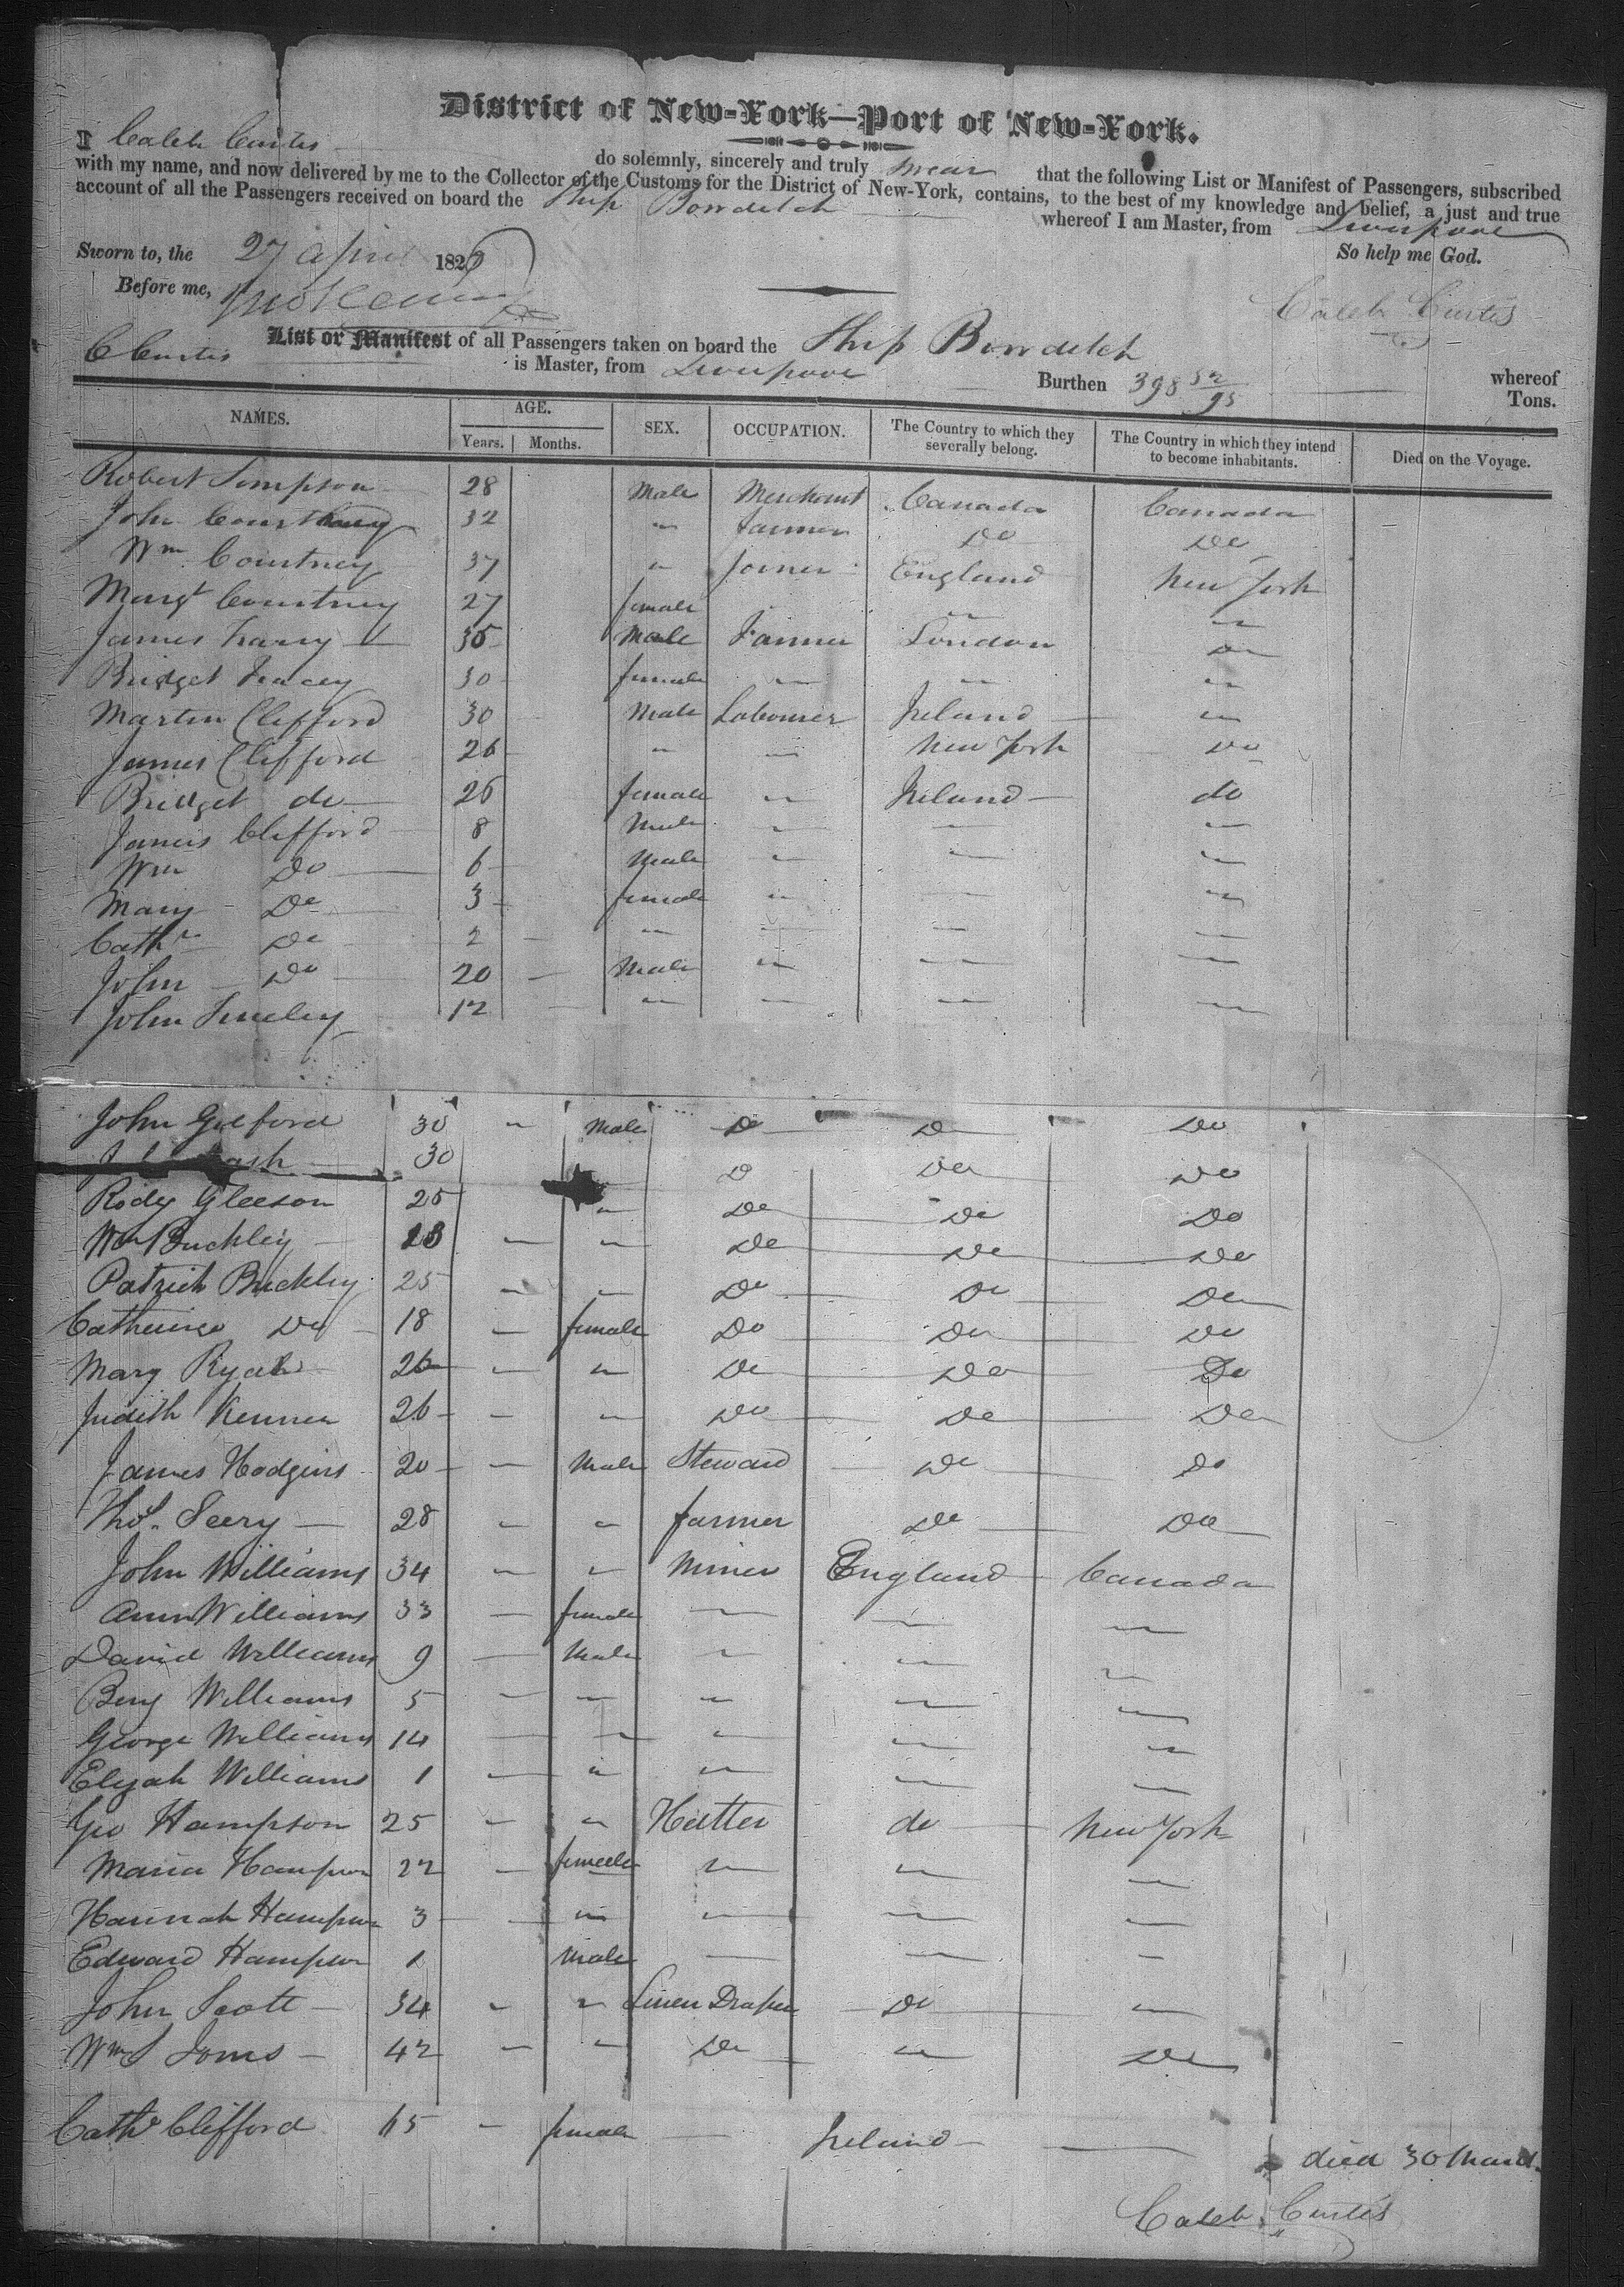 District of New-York—Port of New-York.
I Caleb Curtis do solemnly, sincerely and truly swear that the following List or Manifest of Passengers, subscribed
with my name, and now delivered by me to the Collector of the Customs for the District of New-York, contains, to the best of my knowledge and belief, a just and true
account of all the Passengers received on board the Ship Bowditch whereof I am Master, from Liverpool
Sworn to, the 27 April 1826 So help me God.
Before me,
Caleb Curtis
List or Manifest of all Passengers taken on board the Ship Bowditch whereof
C Curtis is Master, from Liverpool Burthen 398 52/95 Tons.
NAMES. AGE. Years. Months. SEX. OCCUPATION. The Country to which they severally belong. The Country in which they intend to become inhabitants. Died on the Voyage.
Robert Simpson 28 Male Merchant Canada Canada
John Courtney 32 " farmer Do Do
Wm Courtney 37 " Joiner England New York
Margt Courtney 27 female " "
James Tracey 35 Male Farmer London Do
Bridget Tracey 30 female " " "
Martin Clifford 30 Male Labourer Ireland "
James Clifford 26 " " New York Do
Bridget do 26 female " Ireland do
James Clifford 8 Male " " "
Wm Do 6 Male " " "
Mary Do 3 female " " "
Cathe Do 2 " " " "
John Do 20 Male " " "
John 12 " " " "
John Gilford 30 " Male Do Do Do
30 Do Do Do
Rody Gleeson 25 " Do Do Do
Wm Buckley 23 " " Do Do Do
Patrick Buckley 25 " " Do Do Do
Catherine Do 18 " female Do Do Do
Mary Ryan 26 " " Do Do Do
Judith Kennen 26 " " Do Do Do
James Hodgins 20 " Male Steward Do Do
Thos. Seery 28 " " farmer Do Do
John Williams 34 " " Miner England Canada
Ann Williams 33 " female " " "
David Williams 9 " Male " " "
Benj Williams 5 " " " " "
George Williams 14 " " " " "
Elijah Williams 1 " " " " "
Geo Hampson 25 " " Hatter do New York
Maria Hampson 22 " female " " "
Hannah Hampson 3 " " " " "
Edward Hampson 1 Male " " "
John Scott 34 " " Linen Draper Do "
Wm S Jones 42 " " Do " Do
Cathe Clifford 65 " female Ireland died 30 March
Caleb Curtis